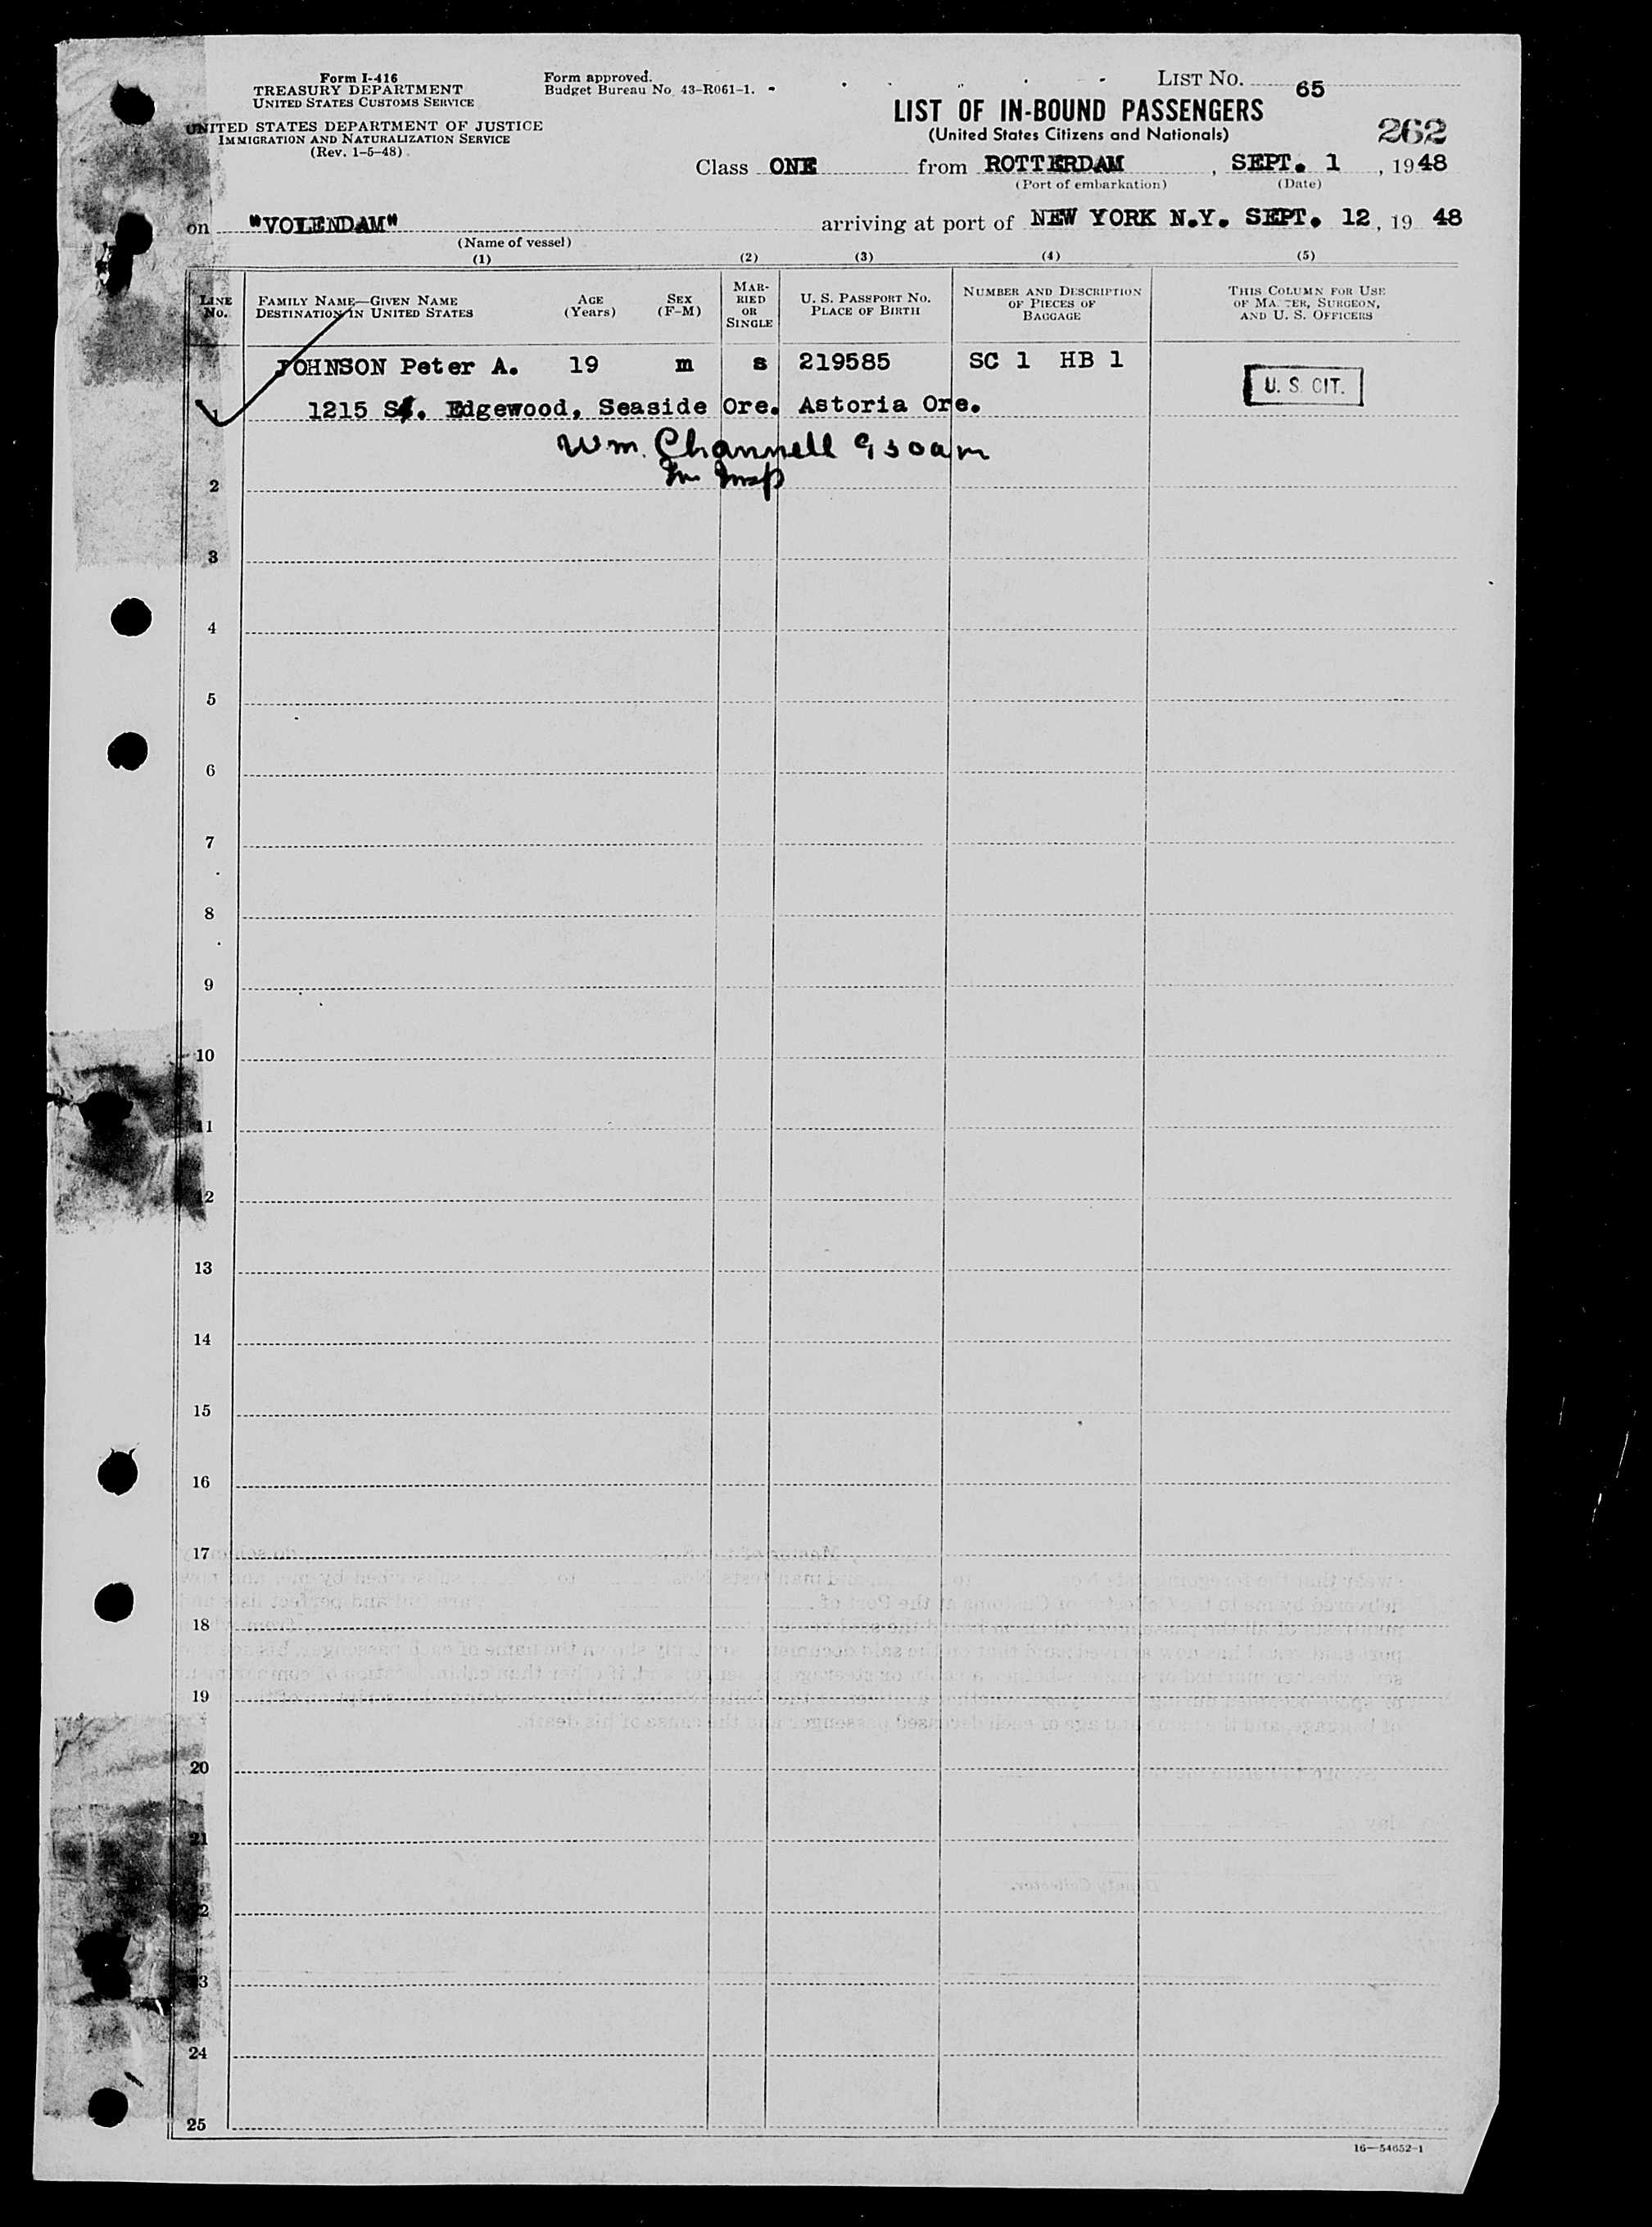 Form I-416
TREASURY DEPARTMENT
UNITED STATES CUSTOMS SERVICE
UNITED STATES DEPARTMENT OF JUSTICE
IMMIGRATION AND NATURALIZATION SERVICE
(Rev. 1-5-48)
Form approved.
Budget Bureau No. 43-R061-1.
LIST NO. 65
LIST OF IN-BOUND PASSENGERS
(United States Citizens and Nationals)
262
Class ONE from ROTTERDAM, SEPT. 1, 1948
(Port of embarkation) (Date)
on "VOLENDAM" arriving at port of NEW YORK N.Y. SEPT. 12, 19 48
(Name of vessel)
(1) (2) (3) (4) (5)
LINE NO.
FAMILY NAME—GIVEN NAME
DESTINATION IN UNITED STATES
AGE
(Years)
SEX
(F-M)
MAR-
RIED
OR
SINGLE
U. S. PASSPORT NO.
PLACE OF BIRTH
NUMBER AND DESCRIPTION
OF PIECES OF
BAGGAGE
THIS COLUMN FOR USE
OF MASTER, SURGEON,
AND U. S. OFFICERS
JOHNSON Peter A. 19 m s 219585 SC 1 HB 1
U. S. CIT.
1 1215 S. Edgewood, Seaside Ore. Astoria Ore.
Wm. Channell 930am
Im Insp
2
3
4
5
6
7
8
9
10
11
12
13
14
15
16
17
18
19
20
21
22
23
24
25
16—54652-1